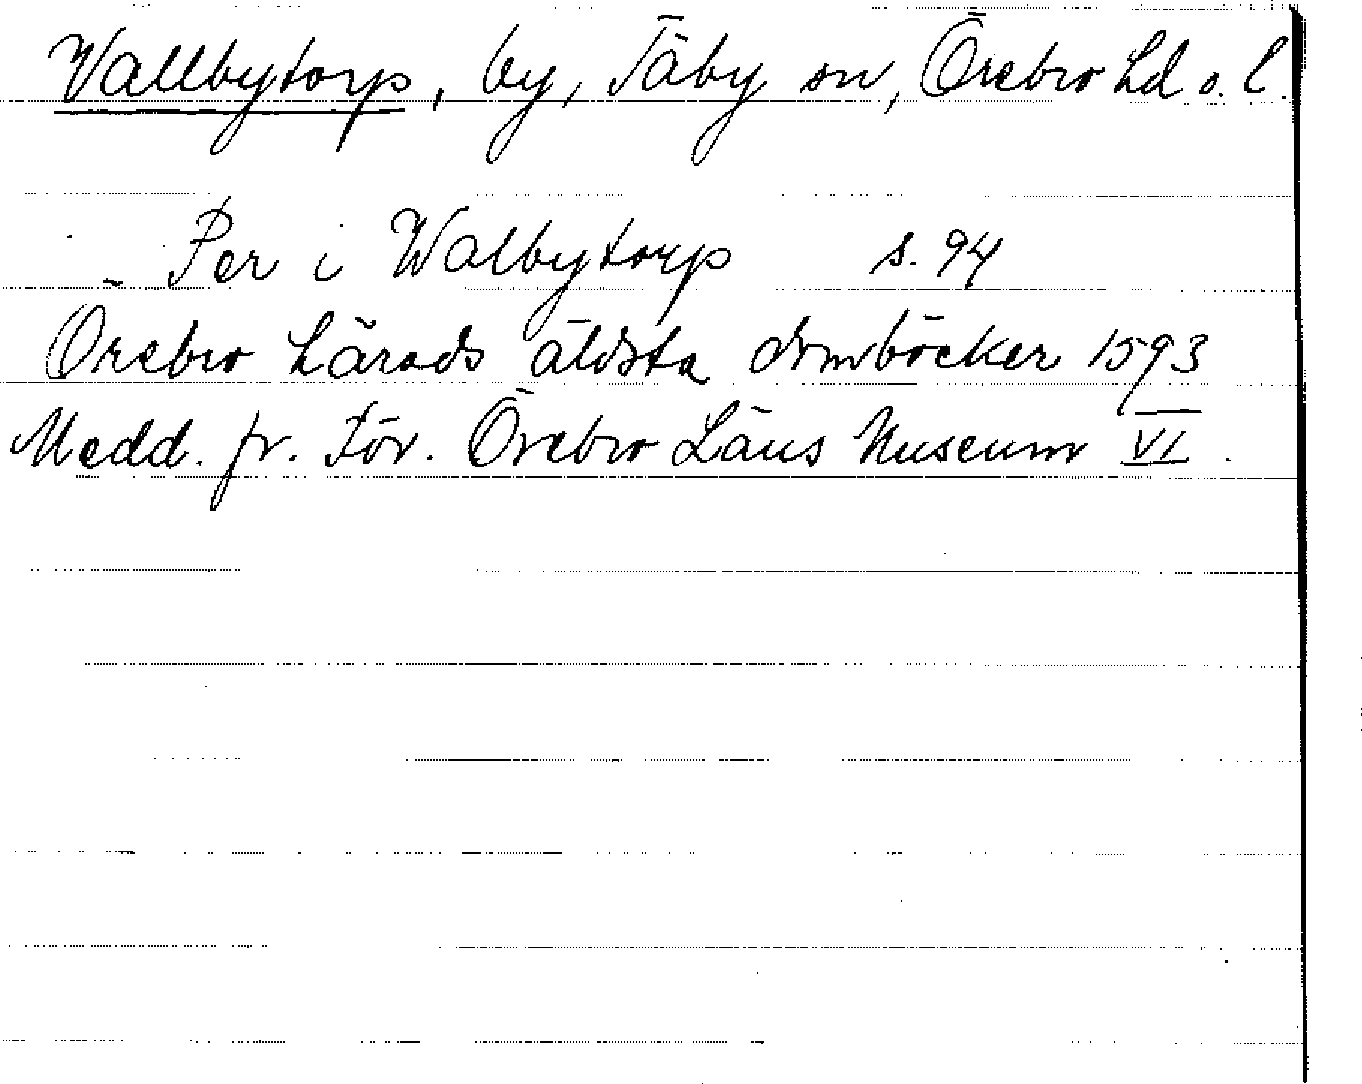 Vallbytorp, by, Täby sn, Örebro hd o. l.
Per i Walbytorp s. 94
Örebro härads äldsta domböcker 1593
Medd. fr. För. Örebro Läns Museum VI.